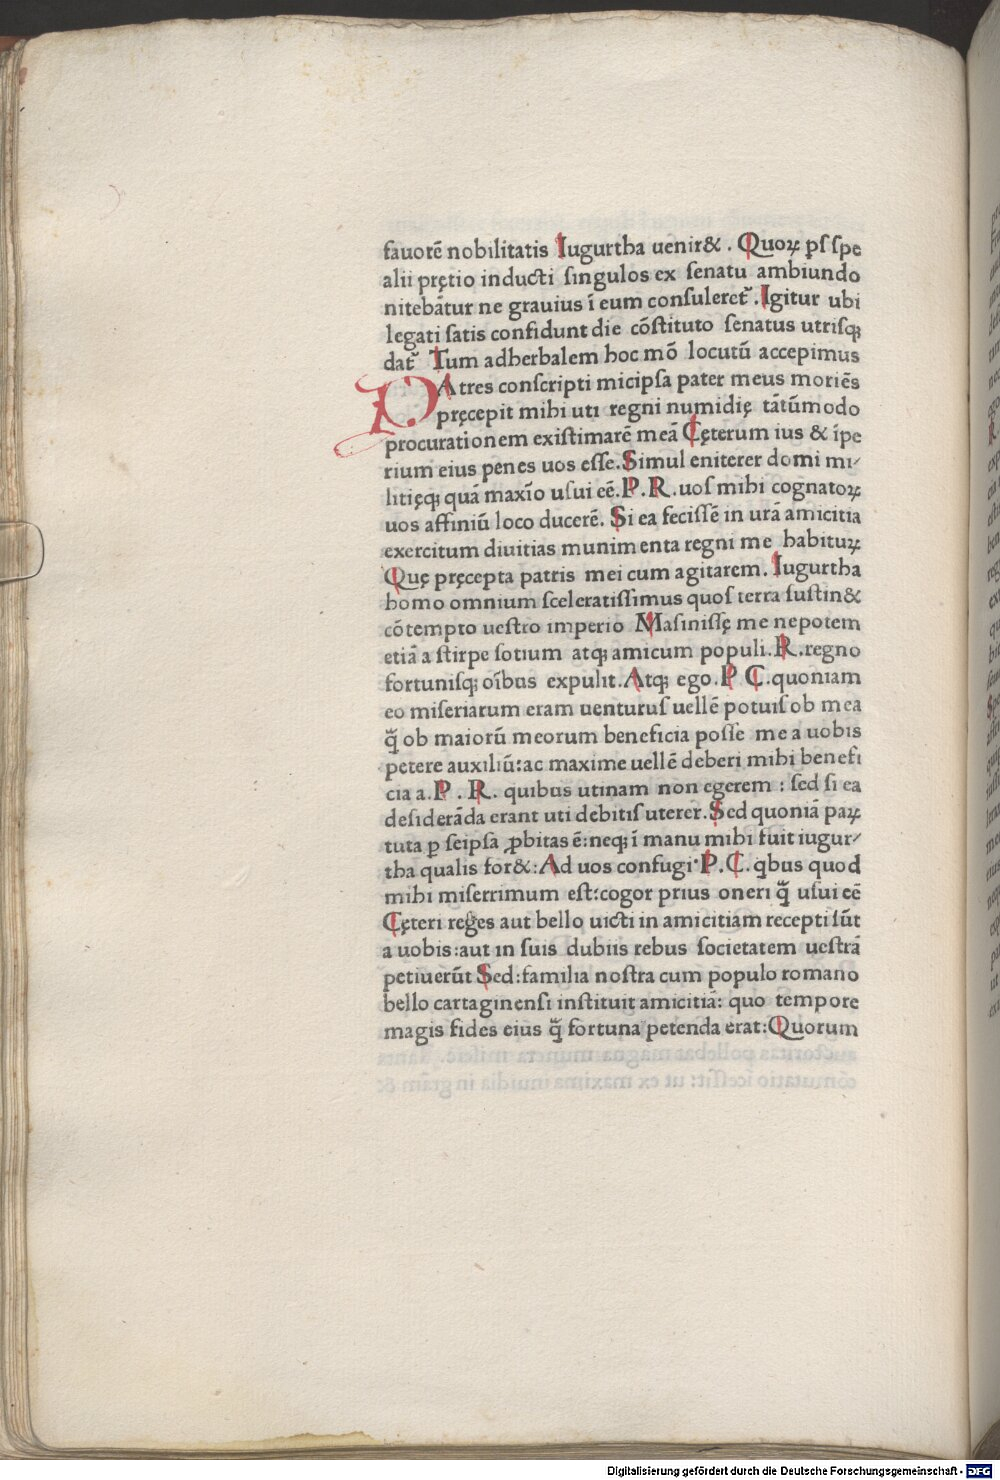 fauorē nobilitatis Iugurtha uenir&. Quoꝝ ꝑſ ſpe
alii pretio inducti ſingulos ex ſenatu ambiundo
nitebātur ne grauius ī eum conſuleret᷑. Igitur ubi
legati ſatis confidunt die cōſtituto ſenatus utriſqꝫ
dat᷑ Tum adherbalem hoc mō locutū accepimus
PAtres conſcripti micipſa pater meus moriēs
pręcepit mihi uti regni numidię tātūmodo
procurationem exiſtimarē meā Cęterum ius & īpe
rium eius penes uos eſſe. Simul eniterer domi mi⸗
litięqꝫ quā maxīo uſui eē. P. R. uoſ mihi cognatoꝝ
uos affiniū loco ducerē. Si ea feciſſē in urā amicitia
exercitum diuitias munimenta regni me habituꝝ
Quę pręcepta patris mei cum agitarem. Iugurtha
homo omnium ſceleratiſſimus quoſ terra ſuſtin&
cōtempto ueſtro imperio Maſiniſſę me nepotem
etiā a ſtirpe ſotium atqꝫ amicum populi. R. regno
fortuniſqꝫ oībus expulit. Atqꝫ ego. P C. quoniam
eo miſeriarum eram uenturuſ uellē potuiſ ob mea
q̄ ob maiorū meorum beneficia poſſe me a uobis
petere auxiliū: ac maxime uellē deberi mihi benefi
cia a. P. R. quibus utinam non egerem: ſed ſi ea
deſiderāda erant uti debitiſ uterer. Sed quoniā paꝝ
tuta ꝑ ſeipſa ꝓbitas ē: neqꝫ ī manu mihi fuit iugur⸗
tha qualis for&: Ad uos confugi P. C. qͥbus quod
mihi miſerrimum eſt: cogor prius oneri q̄ uſui eē
Cęteri reges aut bello uicti in amicitiam recepti ſūt
a uobis: aut in ſuis dubiis rebus ſocietatem ueſtrā
petiuerūt Sed: familia noſtra cum populo romano
bello cartaginenſi inſtituit amicitiā: quo tempore
magis fides eius q̄ fortuna petenda erat: Quorum
Digitalisierung gefördert durch die Deutsche Forschungsgemeinschaft - DFG